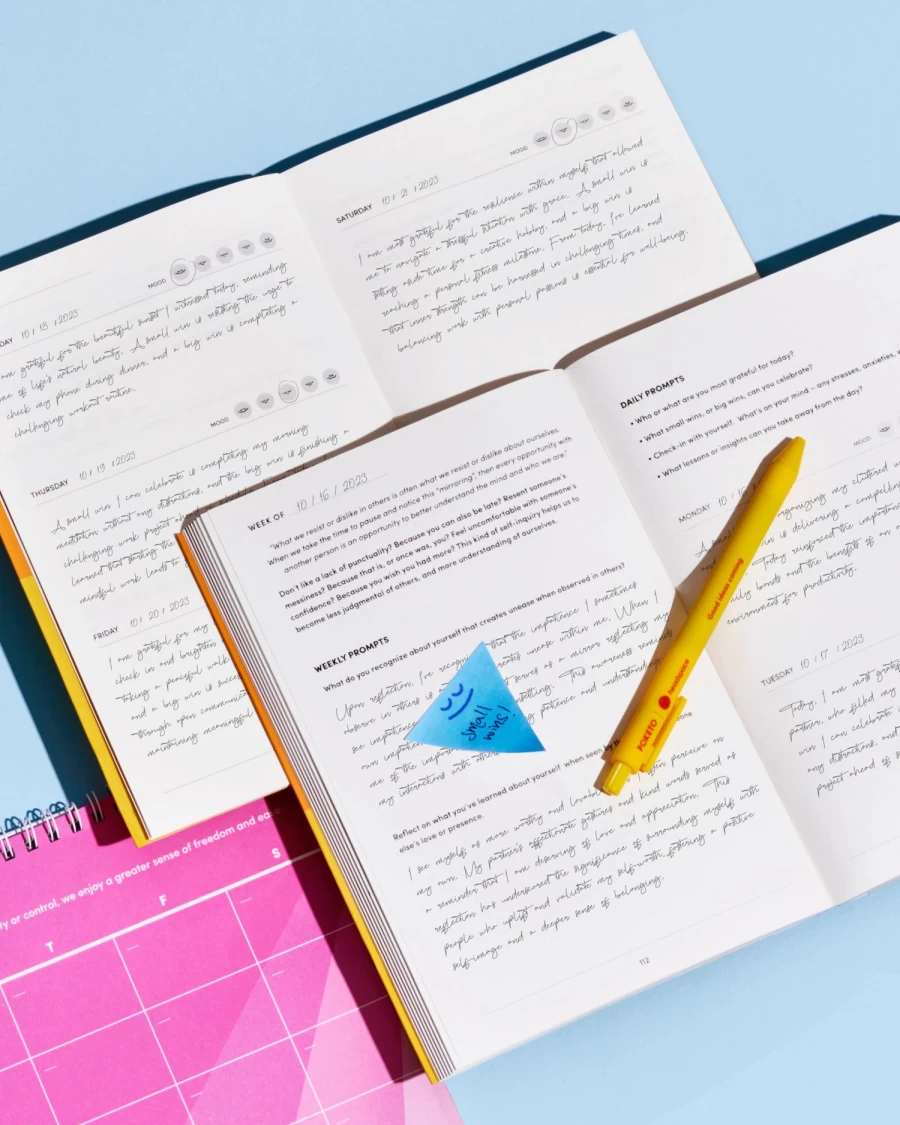 DAY 10 / 18 / 2023
MOOD
am grateful for the beautiful sunset I witnessed today, reminding
me of life's natural beauty. A small win is resisting the urge to
check my phone during dinner, and a big win is completing a
challenging workout routine.
THURSDAY 10 / 19 / 2023
MOOD
A small win I can celebrate is completing my morning
meditation without any distractions, and the big win is finishing a
challenging work project
learned that starting the
mindful work leads to
FRIDAY 10 / 20 / 2023
I am grateful for my
check in and brighten
taking a peaceful walk
and a big win is
through open
maintaining meaningful
SATURDAY 10 / 21 / 2023
MOOD
I am most grateful for the resilience within myself that allowed
me to navigate a stressful situation with grace. A small win is
setting aside time for a creative hobby, and a big win is
reaching a personal fitness milestone. From today, I've learned
that inner strength can be harnessed in challenging times, and
balancing work with personal passions is essential for well-being.
WEEK OF 10 / 16 / 2023
"What we resist or dislike in others is often what we resist or dislike about ourselves.
When we take the time to pause and notice this "mirroring," then every opportunity with
another person is an opportunity to better understand the mind and who we are."
Don't like a lack of punctuality? Because you can also be late? Resent someone's
messiness? Because that is, or once was, you? Feel uncomfortable with someone's
confidence? Because you wish you had more? This kind of self-inquiry helps us to
become less judgmental of others, and more understanding of ourselves.
WEEKLY PROMPTS
What do you recognize about yourself that creates unease when observed in others?
Upon reflection, I've that the impatience I sometimes
observe in others is creates unease within me. When I
see serves as a mirror reflecting my
own This awareness reminds
me of the patience and understanding
my interactions with
small
wins!
Reflect on what you've learned about yourself when seen by
else's love or presence.
I see myself as more worthy and perceive on
my own. My partner's affectionate gestures and kind words served as
a reminder that I am deserving of love and appreciation. This
reflection has underscored the significance of surrounding myself with
people who uplift and validate my self-worth, fostering a positive
self-image and a deeper sense of belonging.
112
DAILY PROMPTS
• Who or what are you most grateful for today?
• What small wins, or big wins, can you celebrate?
• Check-in with yourself. What's on your mind – any stresses, anxieties,
• What lessons or insights can you take away from the day?
MOOD
MONDAY 10 / 16
organizing my cluttered
win is delivering a
Today reinforced the
daily and the benefits of an
environment for productivity.
TUESDAY 10 / 17 / 2023
Today, I am most
partner, who filled my
win I can celebrate
any distractions, and
project ahead of
Good ideas coming
POKETO | headspace
ty or control, we enjoy a greater sense of freedom and
T F S